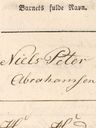 Barnets fulde Navn.
Niels Peter
Abrahamsen